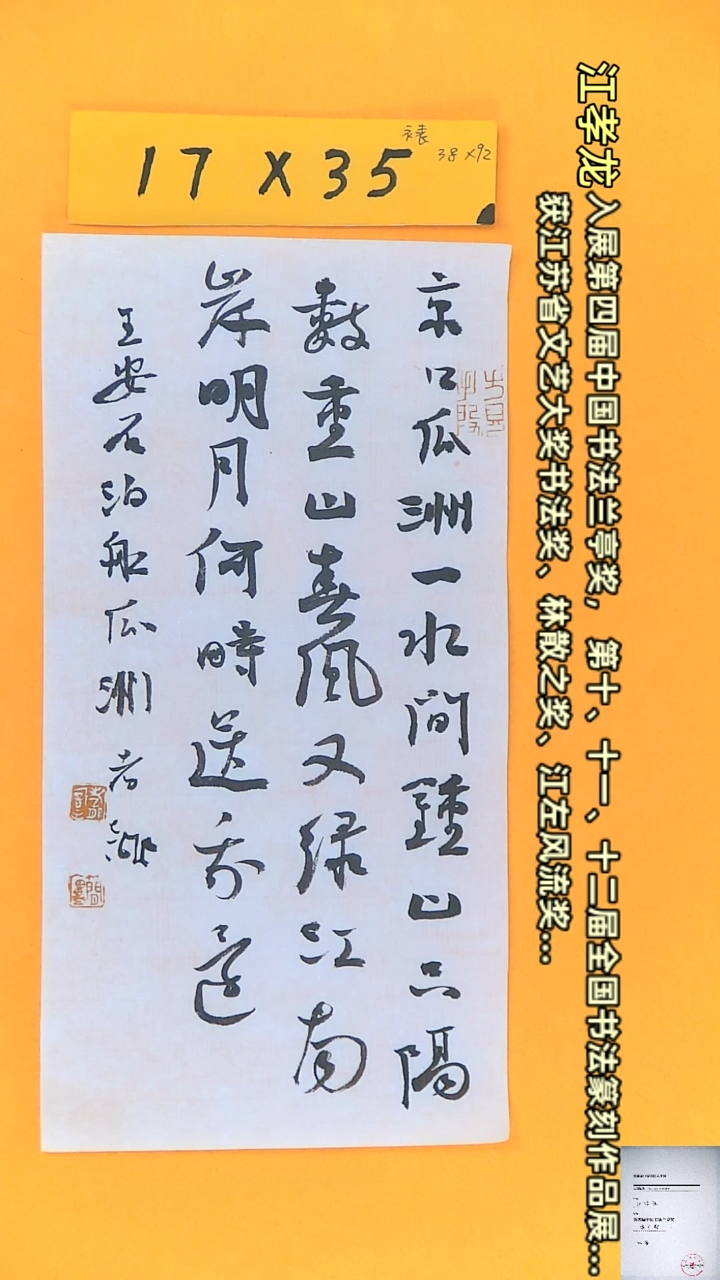 裱 38×92
17×35
江孝龙 入展第四届中国书法兰亭奖，第十、十一、十二届全国书法篆刻作品展...
获江苏省文艺大奖书法奖、林散之奖、江左风流奖...
京口瓜洲一水间鍾山只隔
數重山春風又绿江南
岸明月何時送我還
王安石泊船瓜洲 孝龍